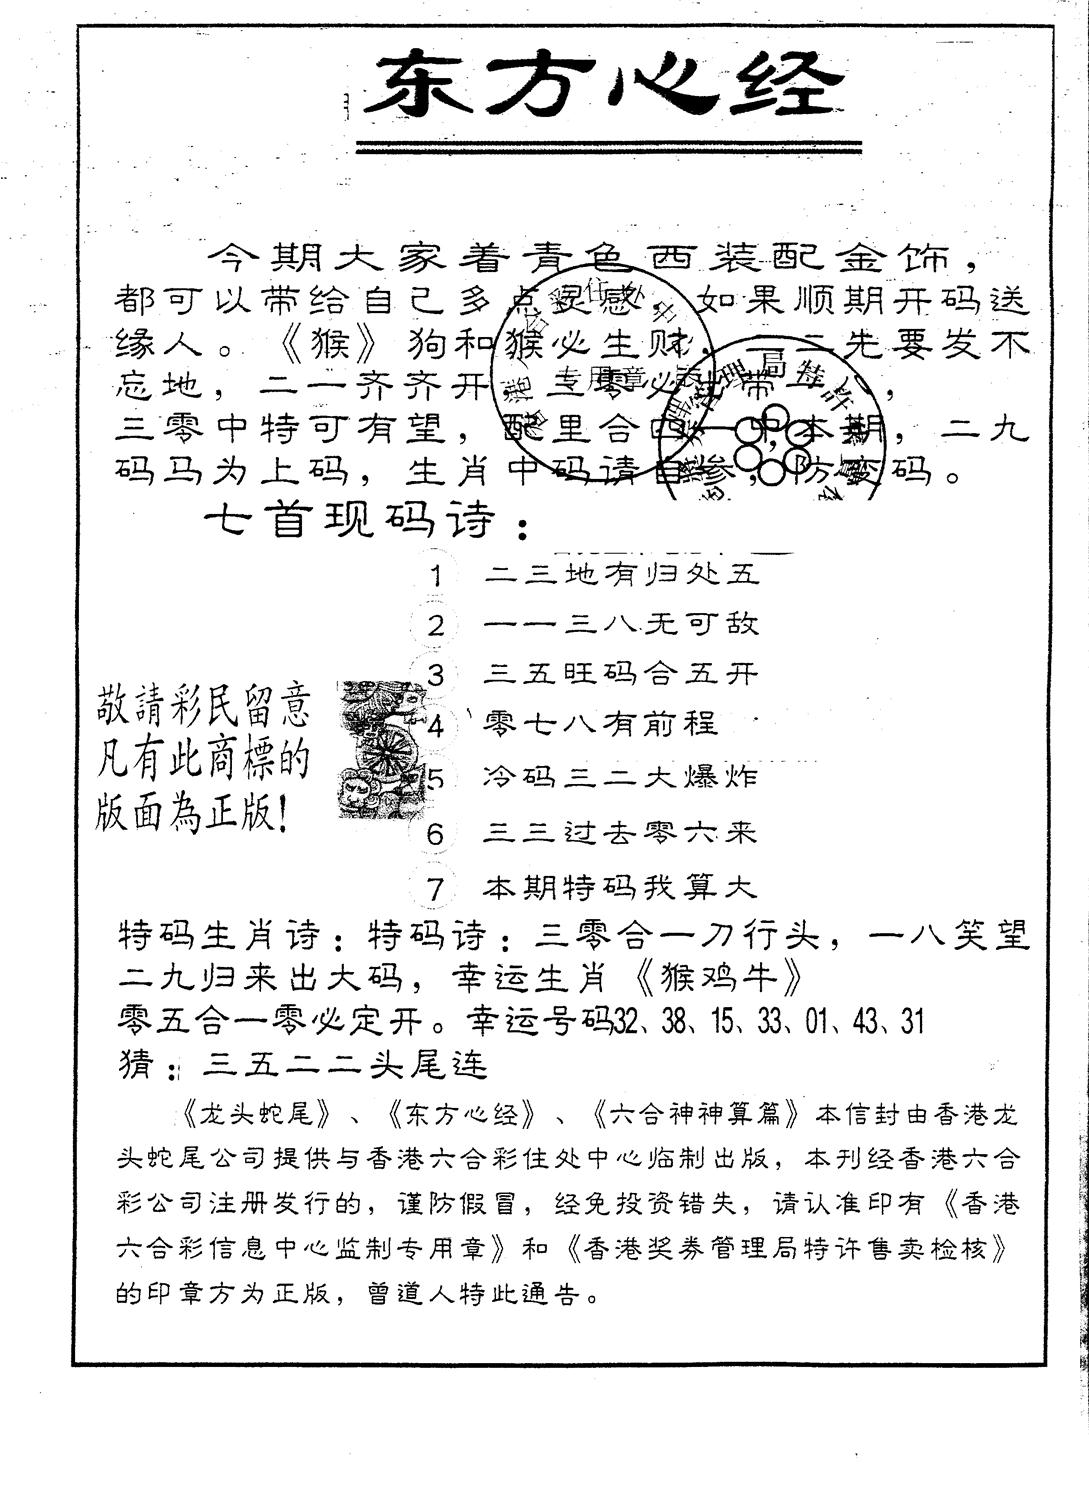 东方心经
今期大家着青色西装配金饰，
都可以带给自己多点灵感，如果顺期开码送
缘人。《猴》狗和猴必生财，一二先要发不
忘地，二一齐齐开，三零必出带
三零中特可有望，配里合四 中本期，二九
码马为上码，生肖中码请自参，防变码。
七首现码诗：
1 二三地有归处五
2 一一三八无可敌
3 三五旺码合五开
4 零七八有前程
5 冷码三二大爆炸
6 三三过去零六来
7 本期特码我算大
敬請彩民留意
凡有此商標的
版面為正版!
特码生肖诗：特码诗：三零合一刀行头，一八笑望
二九归来出大码，幸运生肖《猴鸡牛》
零五合一零必定开。幸运号码32、38、15、33、01、43、31
猜：三五二二头尾连
《龙头蛇尾》、《东方心经》、《六合神神算篇》本信封由香港龙
头蛇尾公司提供与香港六合彩住处中心临制出版，本刊经香港六合
彩公司注册发行的，谨防假冒，经免投资错失，请认准印有《香港
六合彩信息中心监制专用章》和《香港奖券管理局特许售卖检核》
的印章方为正版，曾道人特此通告。
专用章